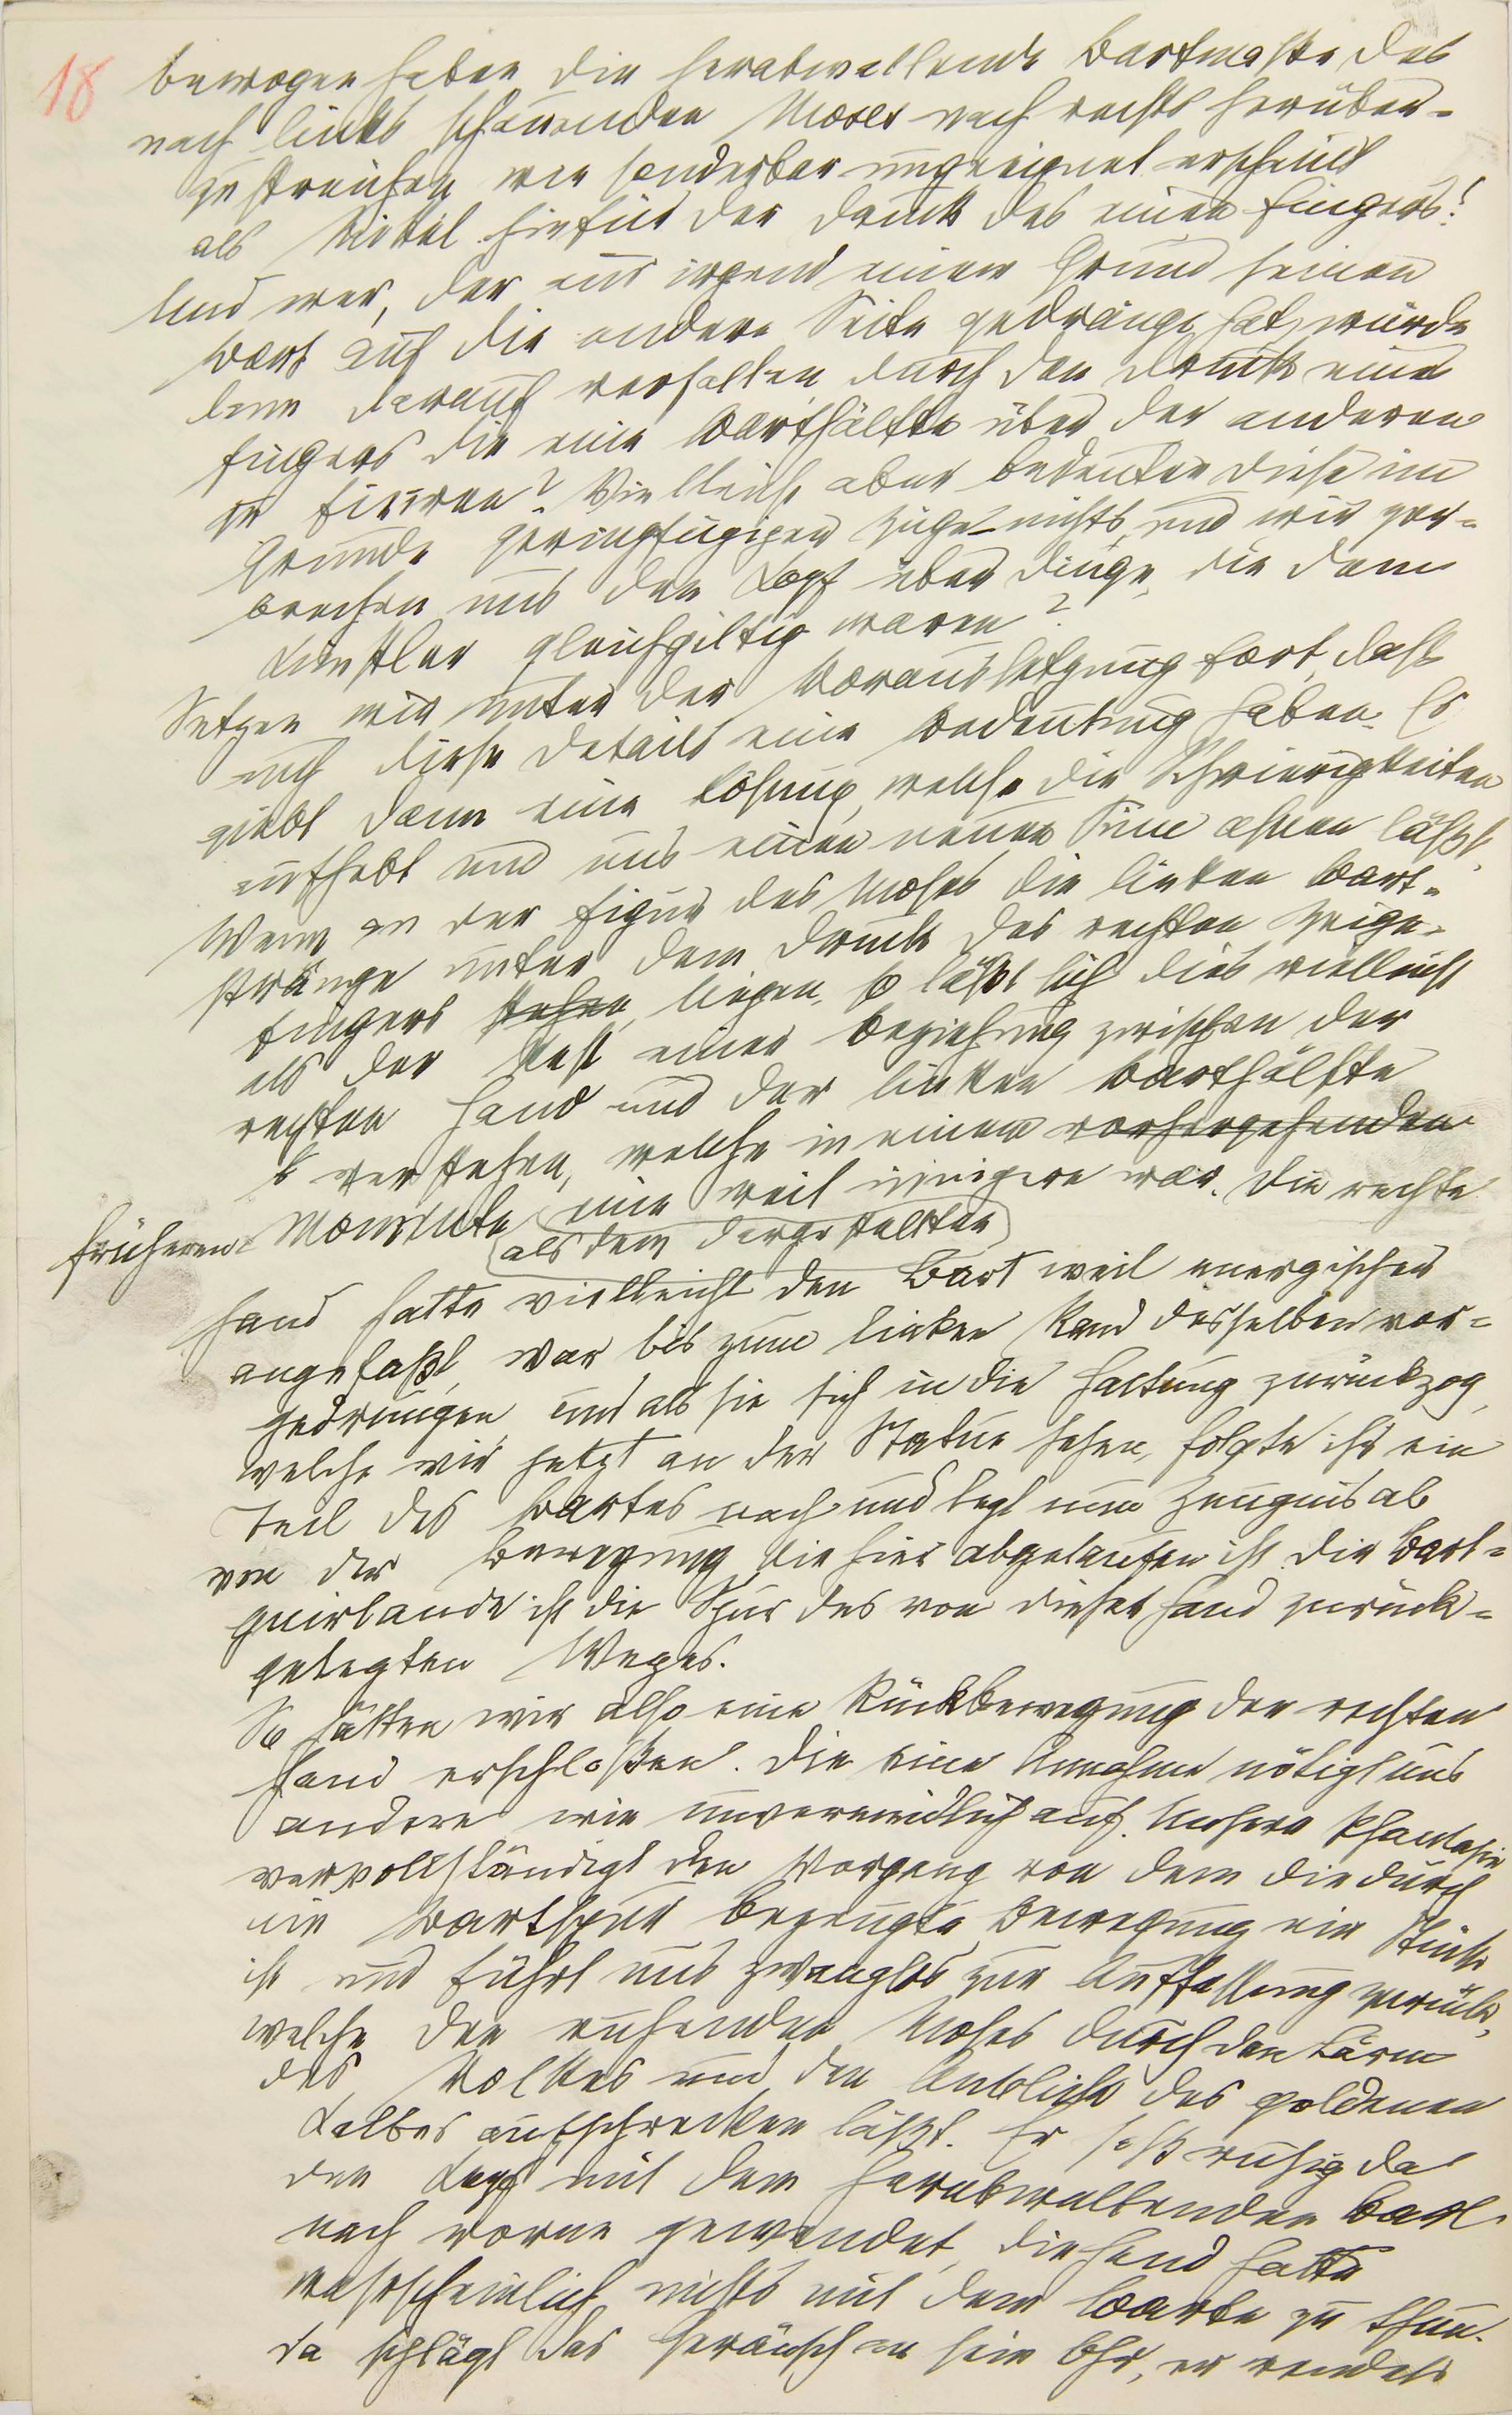 18
bewogen haben die herabwallende Bartmaße des
nach links schauenden Moses nach rechts herüber-
zustreichen, wie sonderbar ungeeignet erscheint
als Mittel hiefür der Druck des einen Fingers!
Und wer, der aus irgend einem Grund seinen
Bart auf die andere Seite gedrängt hat, würde
denn darauf verfallen durch den Druck eines
Fingers die eine Barthälfte über der anderen
zu fixiren? Vielleicht aber bedeuten diese im
Grunde geringfügigen Züge nichts, und wir zer-
brechen uns den Kopf über Dinge, die dem
Künstler gleichgiltig waren?
Setzen wir unter der Voraussetzung fort, daß
auch diese Details eine Bedeutung haben. Es
giebt dann eine Lösung, welche die Schwierigkeiten
aufhebt und uns einen neuen Sinn ahnen läßt.
Wenn an der Figur des Moses die linken Bart-
stränge unter dem Druck des rechten Zeige-
fingers stehen, liegen, so läßt sich dies vielleicht
als der Rest einer Beziehung zwischen der
rechten Hand und der linken Barthälfte
verstehen, welche in einem vorhergehenden
früheren Momente eine weit innigere war. Die rechte
als dem dargestellten
Hand hatte vielleicht den Bart weit energischer
angefaßt, war bis zum linken Rand desselben vor-
gedrungen, und als sie sich in die Haltung zurückzog,
welche wir jetzt an der Statue sehen, folgte ihr ein
Teil des Bartes nach und legt nun Zeugnis ab
von der Bewegung, die hier abgelaufen ist. Die Bart-
guirlande ist die Spur des von dieser Hand zurück-
gelegten Weges.
So hätten wir also eine Rückbewegung der rechten
Hand erschloßen. Die eine Annahme nötigt uns
andere wie unvermeidlich auf. Unsere Phantasie
vervollständigt den Vorgang von dem die durch
die Bartspur bezeugte Bewegung ein Stück
ist und führt uns zwanglos zur Auffassung zurück,
welche den ruhenden Moses durch den Lärm
des Volkes und den Anblick des goldenen
Kalbes aufschrecken läßt. Er saß ruhig da
den Kopf mit dem herabwallenden Bart
nach vorne gewendet, die Hand hatte
wahrscheinlich nichts mit dem Barte zu thun.
Da schlägt das Geräusch an sein Ohr, er wendet